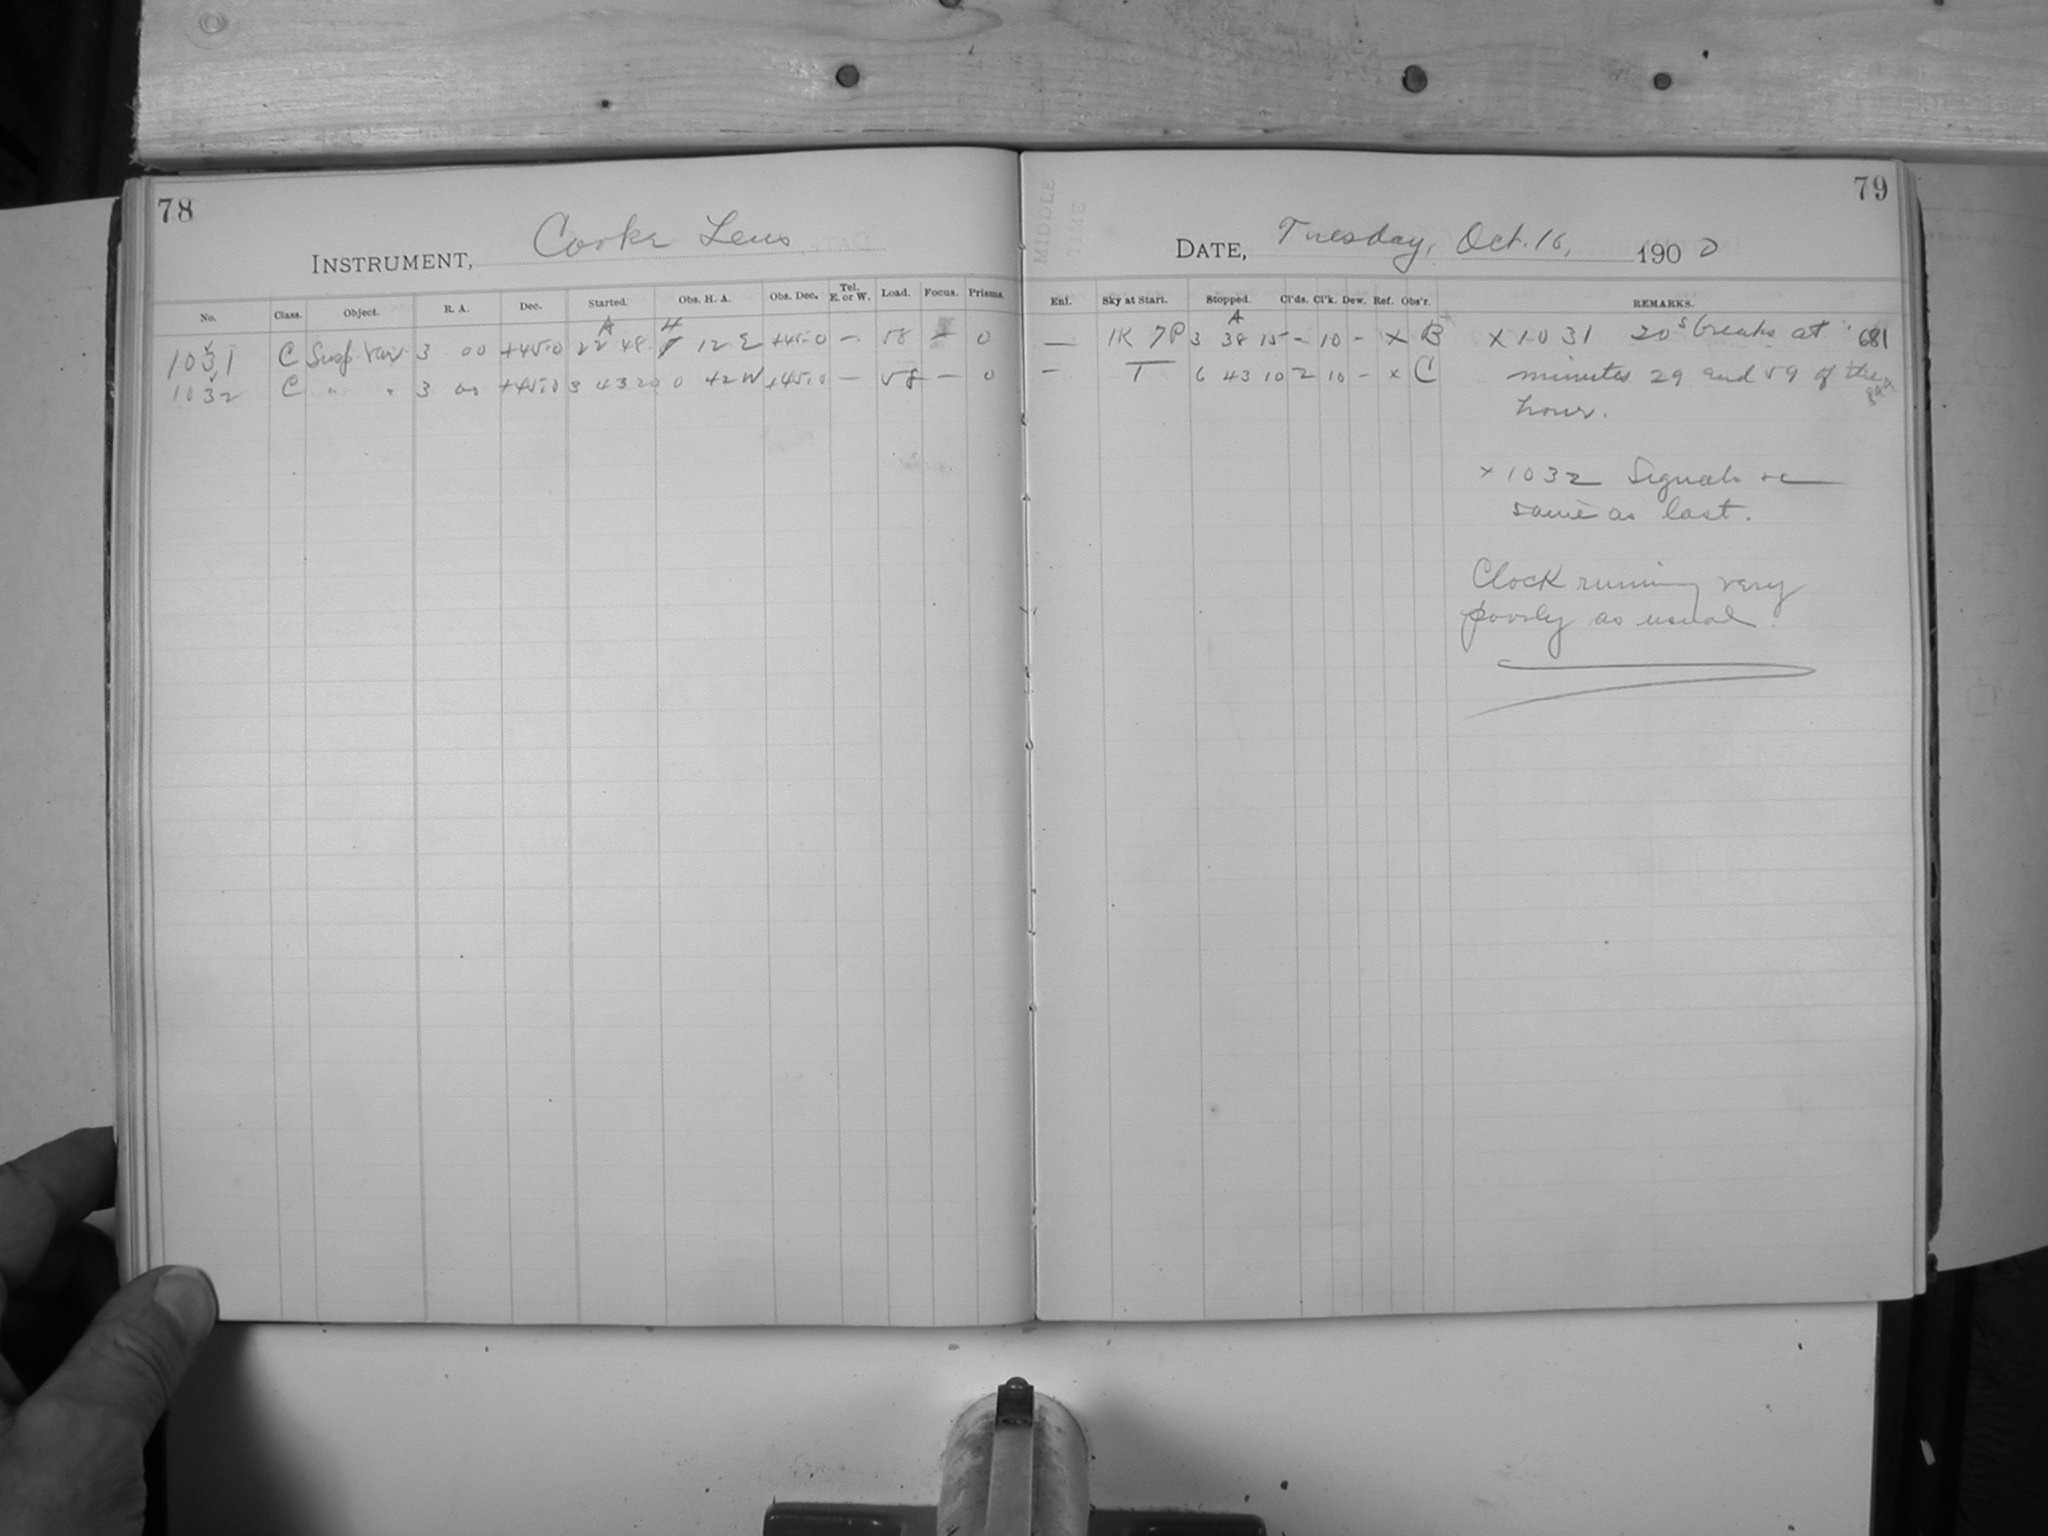 78
INSTRUMENT, Cooke Lens
No. Class. Object. R. A. Dec. Started. Obs. H. A. Obs. Dec. Tel. E. or W. Load. Focus. Prisms.
1031 C Susp Var 3 00 +45.0 22 48 4 12 E +45.0 — 58 — 0
1032 C " " 3 00 +45.0 3 43 20 0 42 W +45.0 — 58 — 0
79
MIDDLE TIME
DATE, Tuesday, Oct. 16, 1900
Enl. Sky at Start. Stopped. Cl'ds. Cl'k. Dew. Ref. Obs'r. REMARKS.
— 1K 7P 3 38 15 - 10 - X B X 1031 20s breaks at 681
— T 6 43 10 2 10 - x C minutes 29 and 59 of the
hour.
x 1032 Signals +c
same as last.
Clock running very
poorly as usual.